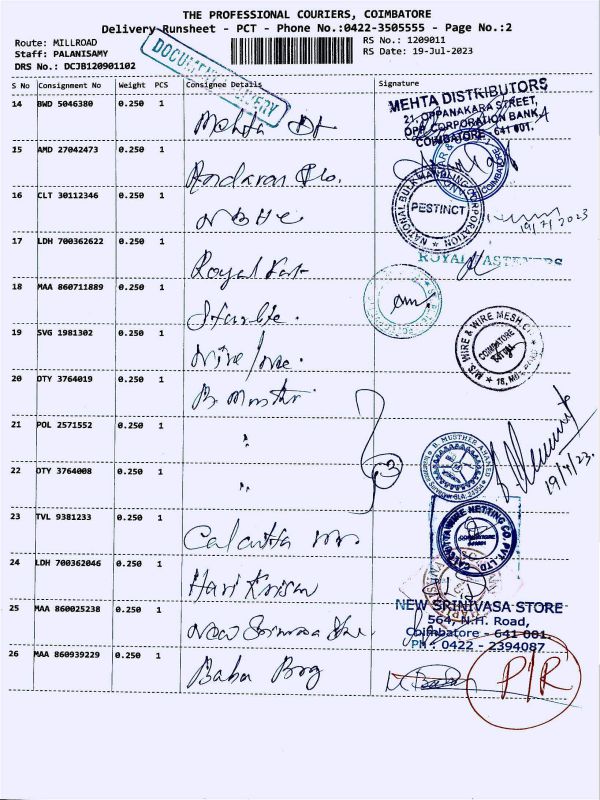 THE PROFESSIONAL COURIERS, COIMBATORE
Delivery Runsheet - PCT - Phone No.:0422-3505555 - Page No.:2
Route: MILLROAD
RS No.: 1209011
Staff: PALANISAMY
RS Date: 19-Jul-2023
DRS No.: DCJB120901102
S No Consignment No Weight PCS Consignee Details Signature
14 BWD 5046380 0.250 1 Mehta Dt
MEHTA DISTRIBUTORS
21, OPPANAKARA STREET,
OPP. CORPORATION BANK,
COIMBATORE - 641 001.
15 AMD 27042473 0.250 1
16 CLT 30112346 0.250 1 NBHC
NATIONAL BULK HANDLING CORPORATION
PESTINCT
19/7/2023
17 LDH 700362622 0.250 1 Royal Fast
ROYAL FASTENERS
18 MAA 860711889 0.250 1
19 SVG 1981302 0.250 1 Wire
M/S. WIRE & WIRE MESH
COIMBATORE
20 OTY 3764019 0.250 1
21 POL 2571552 0.250 1 "
22 OTY 3764008 0.250 1 "
19/7/23.
23 TVL 9381233 0.250 1 Calcutta
CALCUTTA WIRE NETTING CO. PVT. LTD.
COIMBATORE
24 LDH 700362046 0.250 1 Hari Krisna
25 MAA 860025238 0.250 1 New Srinivasa Store.
NEW SRINIVASA STORE
564, N.H. Road,
Coimbatore - 641 001.
PH : 0422 - 2394087
26 MAA 860939229 0.250 1 Baba Brg
P/R